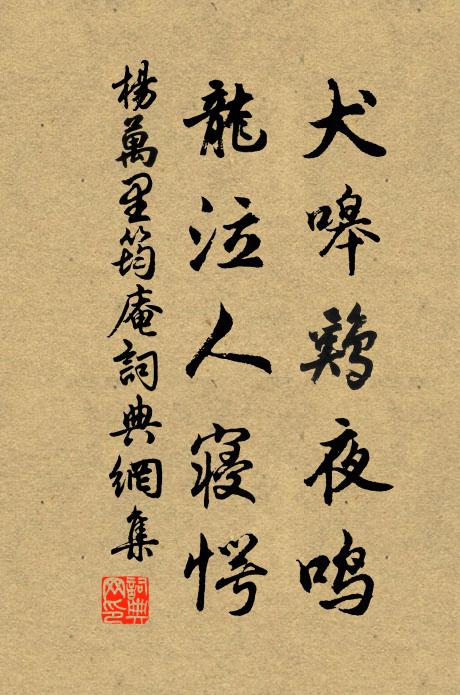 犬嗥鷄夜鸣
龍泣人寝愕
楊萬里筠庵詞典網集
詞典网印